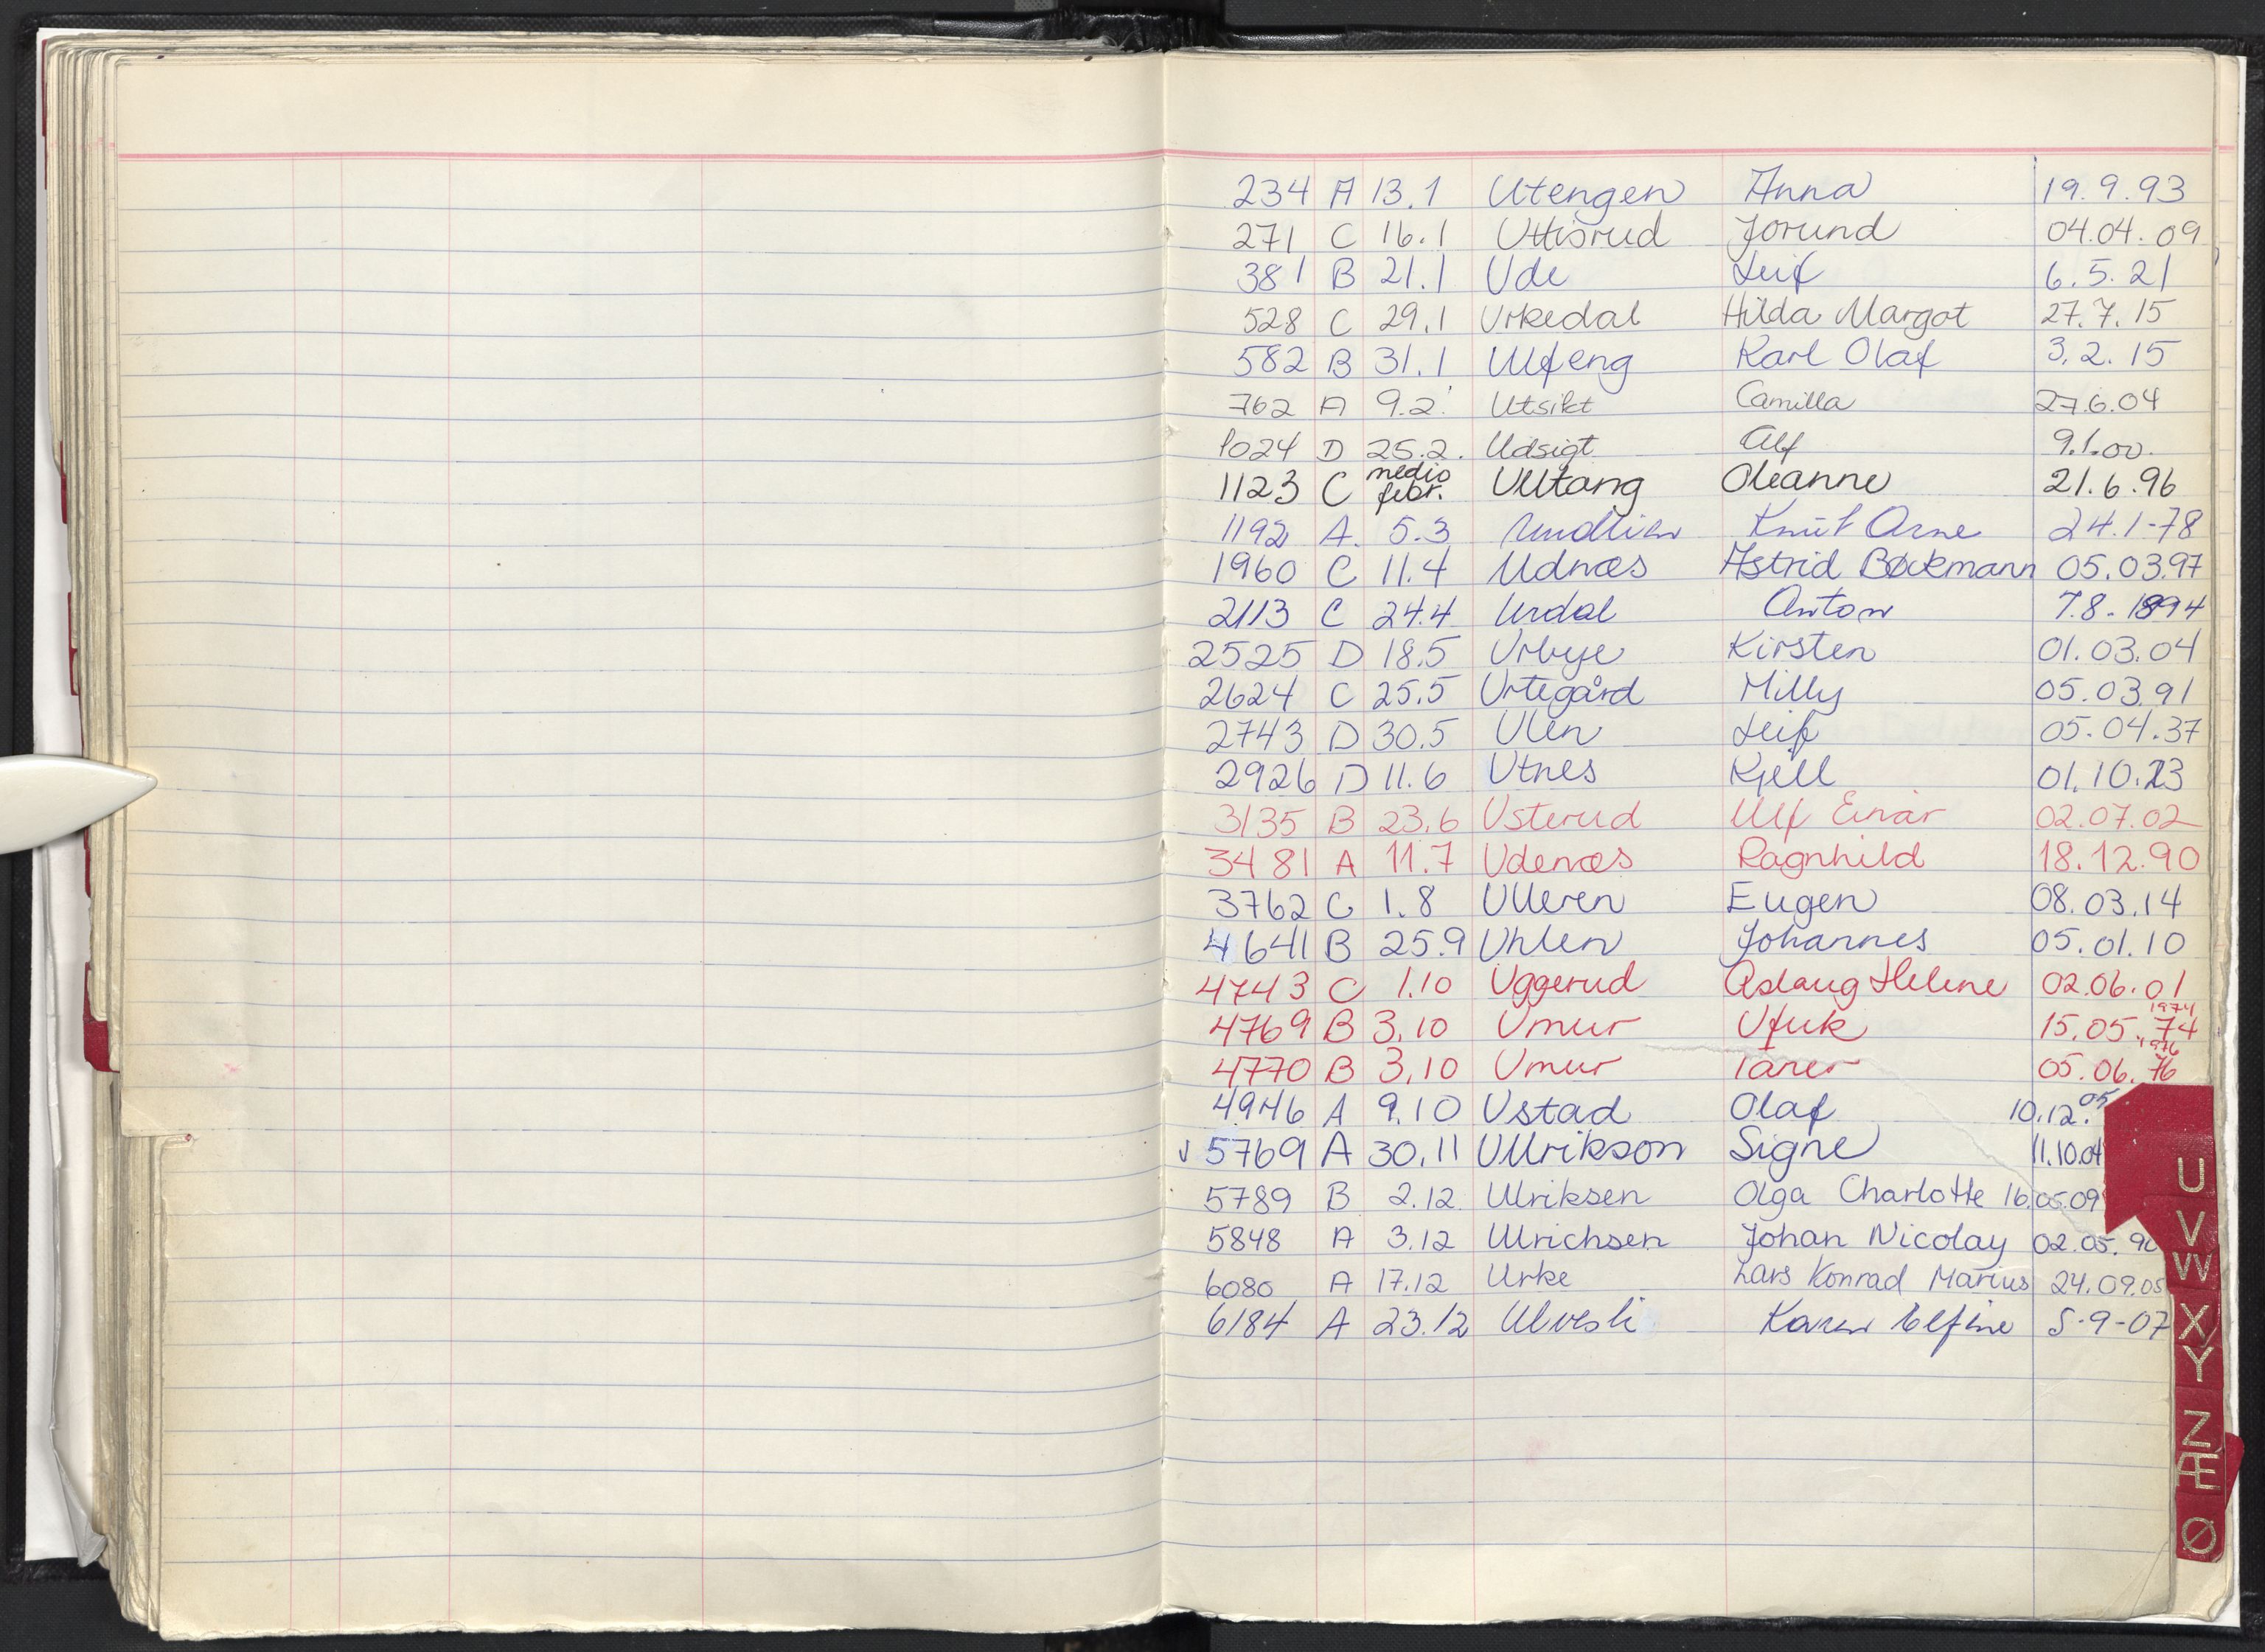 234 A 13.1 Utengen Anna 19.9.93
271 C 16.1 Uttisrud Jorund 04.04.09
381 B 21.1 Ude Leif 6.5.21
528 C 29.1 Urkedal Hilda Margot 27.7.15
582 B 31.1 Ulfeng Karl Olaf 3.2.15
762 A 9.2. Utsikt Camilla 27.6.04
1024 D 25.2. Udsigt Alf 9.1.00.
1123 C medio febr. Ulltang Oleanne 21.6.96
1192 A. 5.3 Undlien Knut Arne 24.1-78
1960 C 11.4 Udnæs Astrid Bøckmann 05.03.97
2113 C 24.4 Urdal Anton 7.8.1894
2525 D 18.5 Urbye Kirsten 01.03.04
2624 C 25.5 Urtegård Milly 05.03.91
2743 D 30.5 Ulen Leif 05.04.37
2926 D 11.6 Utnes Kjell 01.10.23
3135 B 23.6 Usterud Ulf Einar 02.07.02
3481 A 11.7 Udenæs Ragnhild 18.12.90
3762 C 1.8 Ulleren Eugen 08.03.14
4641 B 25.9 Uhlen Johannes 05.01.10
4743 C 1.10 Uggerud Aslaug Helene 02.06.01
4769 B 3.10 Umur Ufuk 15.05.74 1974
4770 B 3.10 Umur Taner 05.06.76 1976
4946 A 9.10 Ustad Olaf 10.12.05
√ 5769 A 30.11 Ullrikson Signe 11.10.04
5789 B 2.12 Ulriksen Olga Charlotte 16.05.09
5848 A 3.12 Ulrichsen Johan Nicolay 02.05.90
6080 A 17.12 Urke Lars Konrad Marius 24.09.05
6184 A 23.12 Ulvesli Karen 5-9-07
U
V
W
X
Y
Z
Æ
Ø